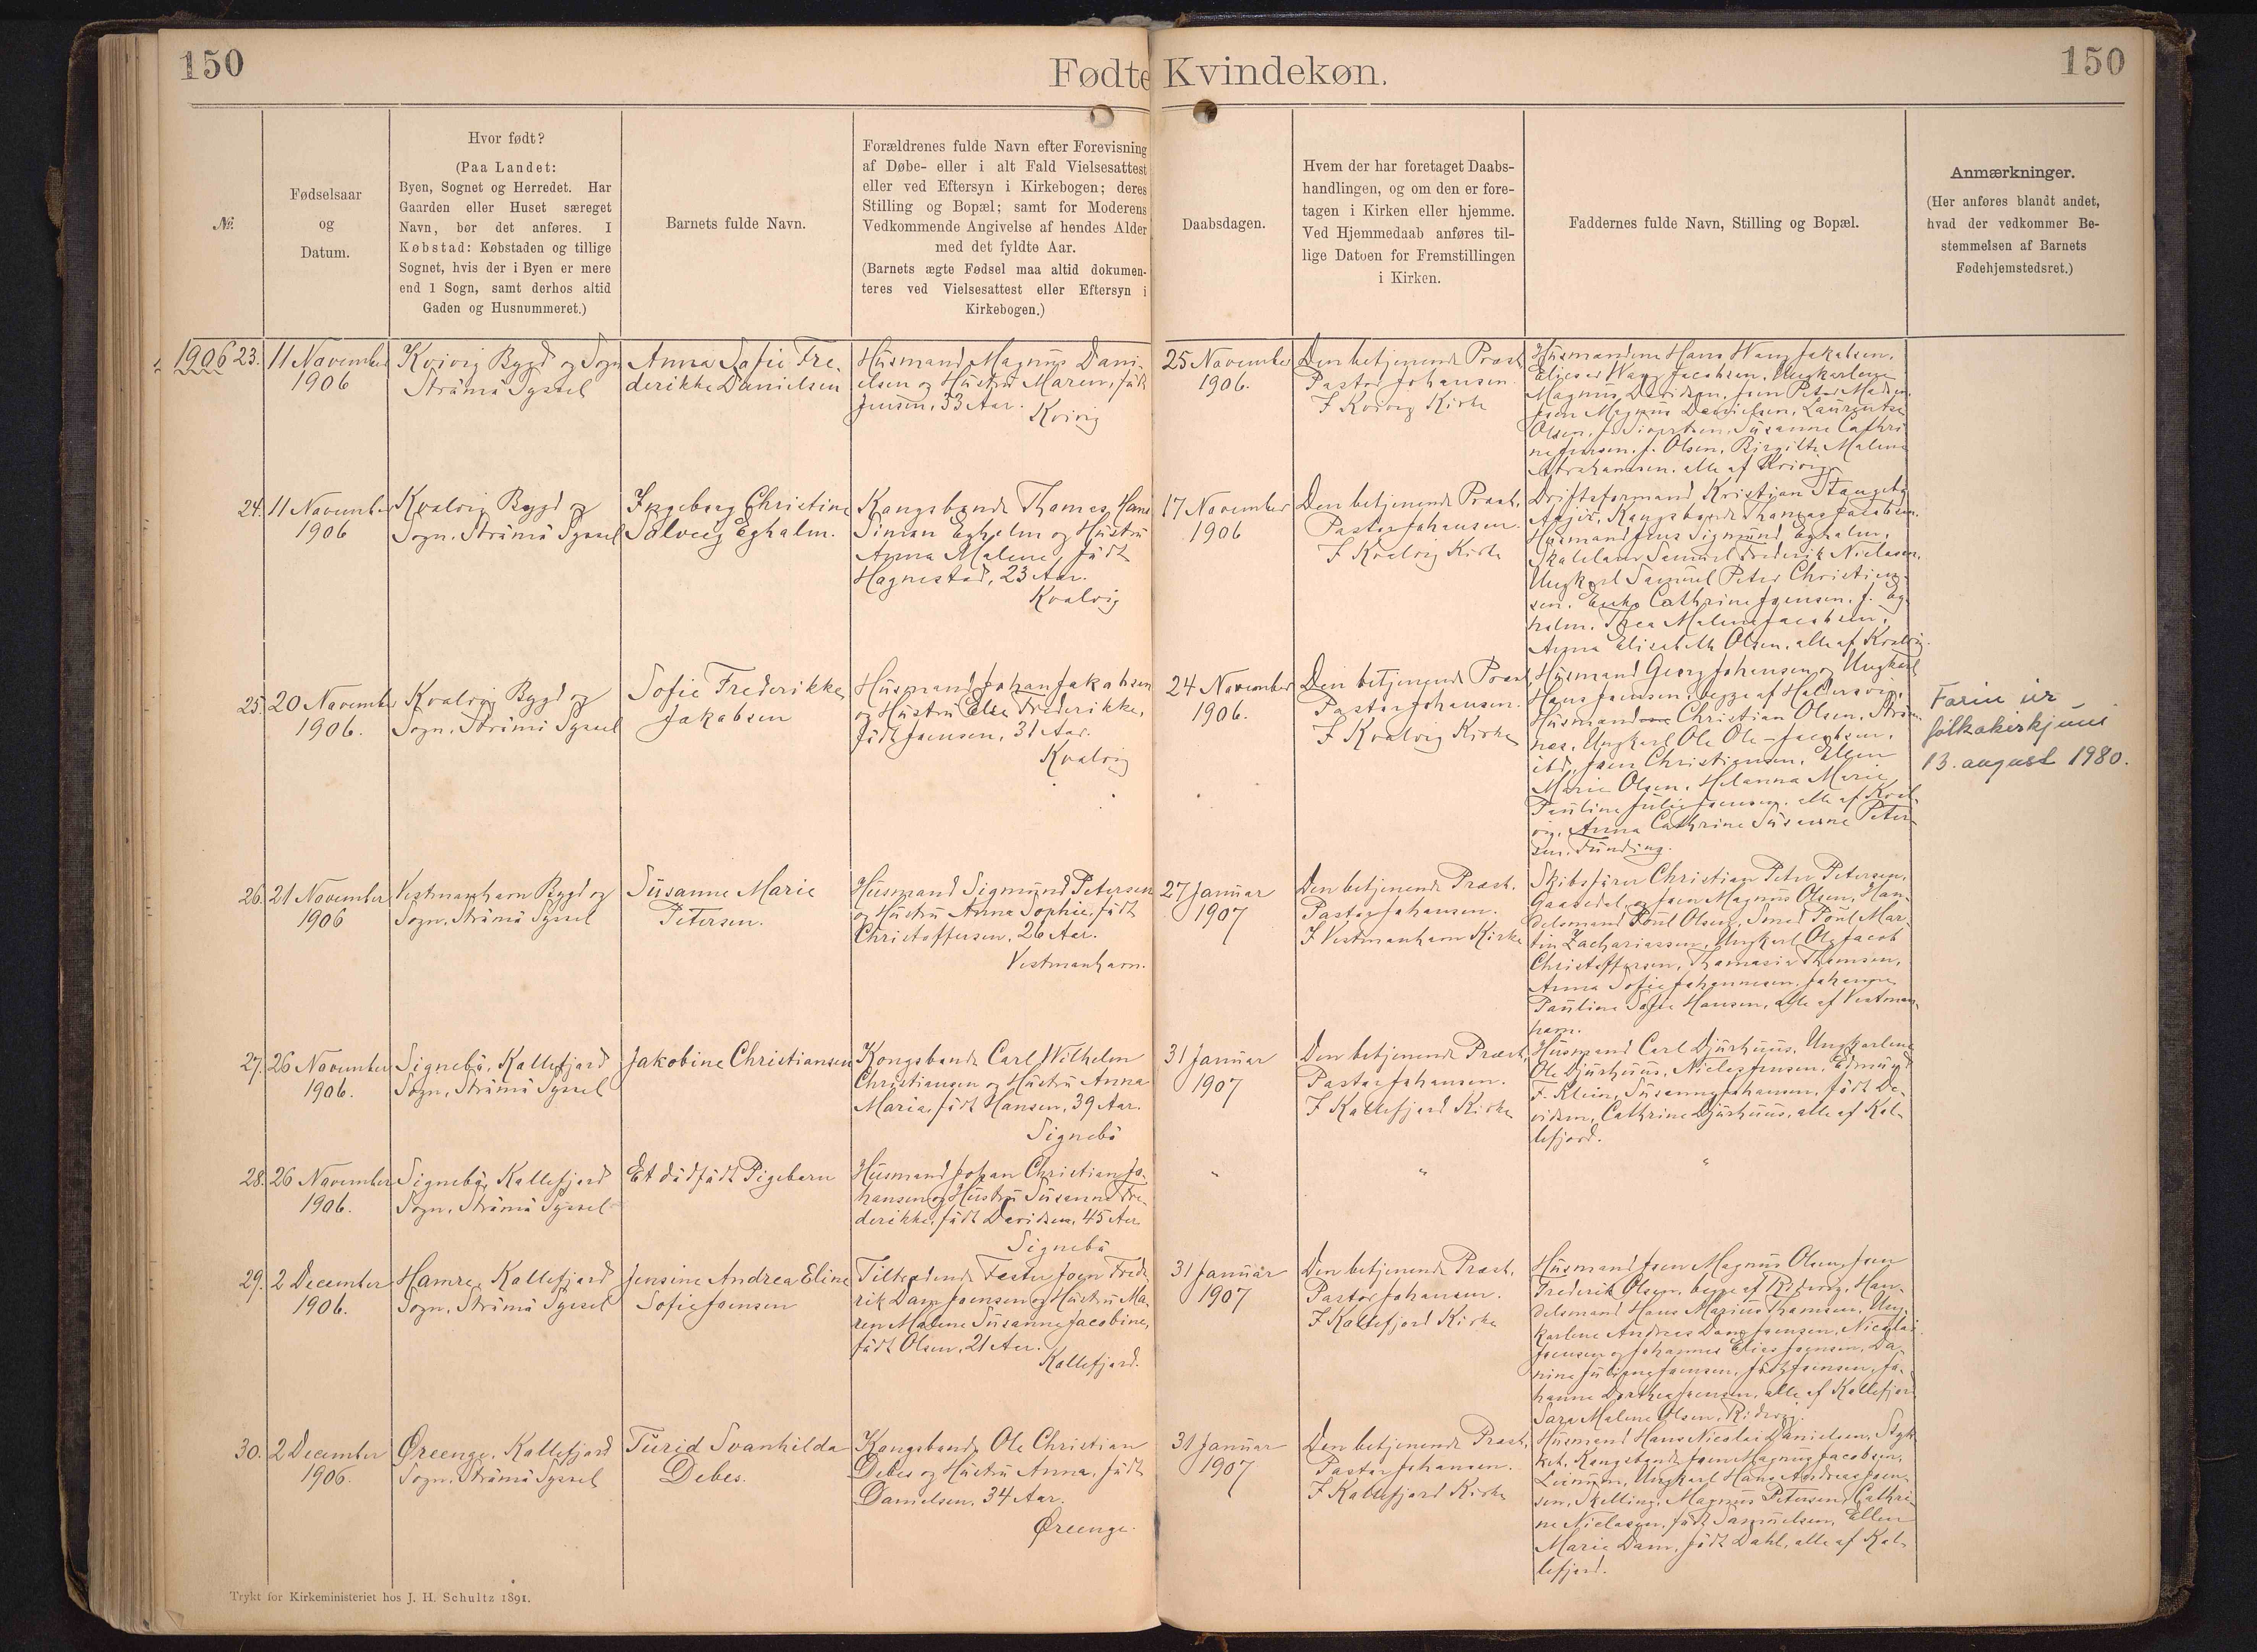 150
Fødte Kvindekøn.
150
№
Fødselsaar
og
Datum.
Hvor født?
(Paa Landet:
Byen, Sognet og Herredet. Har
Gaarden eller Huset særeget
Navn, bør det anføres. I
Købstad: Købstaden og tillige
Sognet, hvis der i Byen er mere
end 1 Sogn, samt derhos altid
Gaden og Husnummeret.)
Barnets fulde Navn.
Forældrenes fulde Navn efter Forevisning
af Døbe- eller i alt Fald Vielsesattest
eller ved Eftersyn i Kirkebogen; deres
Stilling og Bopæl; samt for Moderens
Vedkommende Angivelse af hendes Alder
med det fyldte Aar.
(Barnets ægte Fødsel maa altid dokumen-
teres ved Vielsesattest eller Eftersyn i
Kirkebogen.)
Daabsdagen.
Hvem der har foretaget Daabs-
handlingen, og om den er fore-
tagen i Kirken eller hjemme.
Ved Hjemmedaab anføres til-
lige Datoen for Fremstillingen
i Kirken.
Faddernes fulde Navn, Stilling og Bopæl.
Anmærkninger.
(Her anføres blandt andet,
hvad der vedkommer Be-
stemmelsen af Barnets
Fødehjemstedsret.)
1906 23.
11 November
1906
Kvivig Bygd og Sogn
Strömö Syssel
Anna Sofie Fre-
derikke Danielsen
Husmand Magnus Dani-
elsen og Hustru Maren, födt
Jensen, 33 Aar.
Kvivig
25 November
1906.
Den betjenende Præst
Pastor Johansen.
I Kvivig Kirke
Husmændene Hans Wang Jakobsen,
Elieser Wang Jacobsen, Ungkarlene
Magnus Davidsen, Joen Peter Madsen,
Joen Magnus Danielsen, Laurentse
Olsen, f. Sivertsen, Susanne Cathri-
ne Joensen, f. Olsen, Birgitte Malene
Abrahamsen, alle af Kvivig.
24.
11 November
1906
Kvalvig Bygd og
Sogn, Strömö Syssel
Ingeborg Christine
Solveig Egholm.
Kongsbonde Thomas Hans
Simon Egholm og Hustru
Anna Malene, födt
Hagnestad, 23 Aar.
Kvalvig
17 November
1906
Den betjenende Præst,
Pastor Johansen.
I Kvalvig Kirke
Driftsformand Kristian Stangeby
Kongsbonde Thomas Jacobsen,
Husmand Jens Sigmund Egholm,
Skolelærer Samuel Frederik Nielsen,
Ungkarl Samuel Peter Christian-
sen, Cathrine Joensen, f. Eg-
holm, Thea Malene Jacobsen,
Anna Elisabeth Olsen, alle af Kvalvig.
25.
20 November
1906.
Kvalvig Bygd og
Sogn, Strömö Syssel
Sofie Frederikke
Jakobsen
Husmand Johan Jakobsen
og Hustru Else Frederikke,
födt Joensen, 31 Aar.
Kvalvig
24 November
1906.
Den betjenende Præst,
Pastor Johansen.
I Kvalvig Kirke
Husmand Georg Johansen og Ungkarl
Hans Joensen, begge af Haldersvig,
Husmand Christian Olsen, Ström-
næs, Ungkarl Ole Ole-Jacobsen,
ibd, Joen Christiansen, Ellen
Marie Olsen, Helanna Marie
Pauline Julie Joensen, alle af Kval-
vig, Anna Cathrine Susanne Peter-
sen, Funding.
Farin úr
fólkakirkjuni
13. august 1980.
26.
21 November
1906
Vestmanhavn Bygd og
Sogn, Strömö Syssel
Susanne Marie
Petersen.
Husmand Sigmund Petersen
og Hustru Anna Sophie, födt
Christoffersen, 26 Aar.
Vestmanhavn.
27 Januar
1907
Den betjenende Præst,
Pastor Johansen.
I Vestmanhavn Kirke
Skibsförer Christian Peter Petersen,
Gaasedal, og Joen Magnus Olsen, Han-
delsmand Poul Olsen, Smed Poul Mar-
tin Zachariassen, Ungkarl Ole Jacob
Christoffersen, Thomasia Thomsen,
Anna Sofie Johannesen, Johanne
Pauline Sofie Hansen, alle af Vestman-
havn.
27.
26 November
1906.
Signebö, Kollefjord
Sogn, Strömö Syssel
Jakobine Christiansen
Kongsbonde Carl Wilhelm
Christiansen og Hustru Anna
Maria, födt Hansen, 39 Aar.
Signebö
31 Januar
1907
Den betjenende Præst,
Pastor Johansen.
I Kollefjord Kirke
Husmand Carl Djurhuus, Ungkarlene
Ole Djurhuus, Niels Jensen, Edmund
F. Klein, Susanne Johansen, födt Da-
vidsen, Cathrine Djurhuus, alle af Kol-
lefjord.
28.
26 November
1906.
Signebö, Kollefjord
Sogn, Strömö Syssel
Et dödfödt Pigebarn
Husmand Johan Christian Jo-
hansen og Hustru Susanne Fre-
derikke, födt Davidsen, 45 Aar
Signebö
"
"
"
29.
2 December
1906.
Hamre, Kollefjord
Sogn, Strömö Syssel
Jensine Andrea Eline
Sofie Joensen
Tiltrædende Fæster Joen Frede-
rik Dam Joensen og Hustru Ma-
ren Malene Susanne Jacobine,
födt Olsen, 21 Aar.
Kollefjord.
31 Januar
1907
Den betjenende Præst,
Pastor Johansen.
I Kollefjord Kirke
Husmand Joen Magnus Olsen, Joen
Frederik Olsen, begge af Ridevig, Han-
delsmand Hans Marius Thomsen, Ung-
karlene Andreas Dam Joensen, Nicolai
Joensen og Johannes Elias Joensen, Da-
nine Juliane Joensen, födt Joensen, Jo-
hanne Dorthea Joensen, alle af Kollefjord
Sara Malene Olsen, Ridevig.
30.
2 December
1906.
Öreenge, Kollefjord
Sogn, Strömö Syssel
Turid Svanhilda
Debes.
Kongsbonde Ole Christian
Debes og Hustru Anna, födt
Danielsen, 34 Aar.
Öreenge.
31 Januar
1907
Den betjenende Præst,
Pastor Johansen.
I Kollefjord Kirke
Husmand Hans Nicolai Danielsen, Styk-
ket, Kongsbonde Joen Magnus Jacobsen,
Leinum, Ungkarl Hans Andreas Joen-
sen, Skelling, Magnus Petersen, Cathri-
ne Nielsen, födt Samuelsen, Ellen
Marie Dam, födt Dahl, alle af Kol-
lefjord.
Trykt for Kirkeministeriet hos J. H. Schultz 1891.